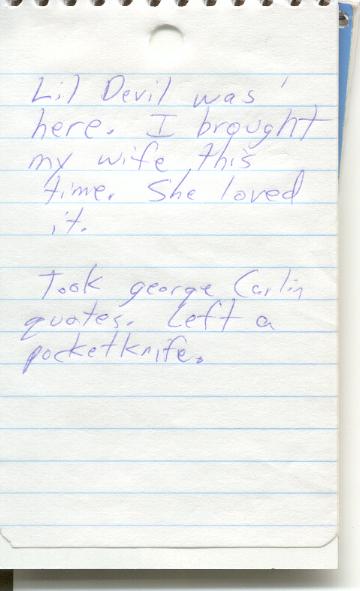 Lil Devil was
here. I brought
my wife this
time. She loved
it.
Took george Carlin
quotes. Left a
pocketknife.